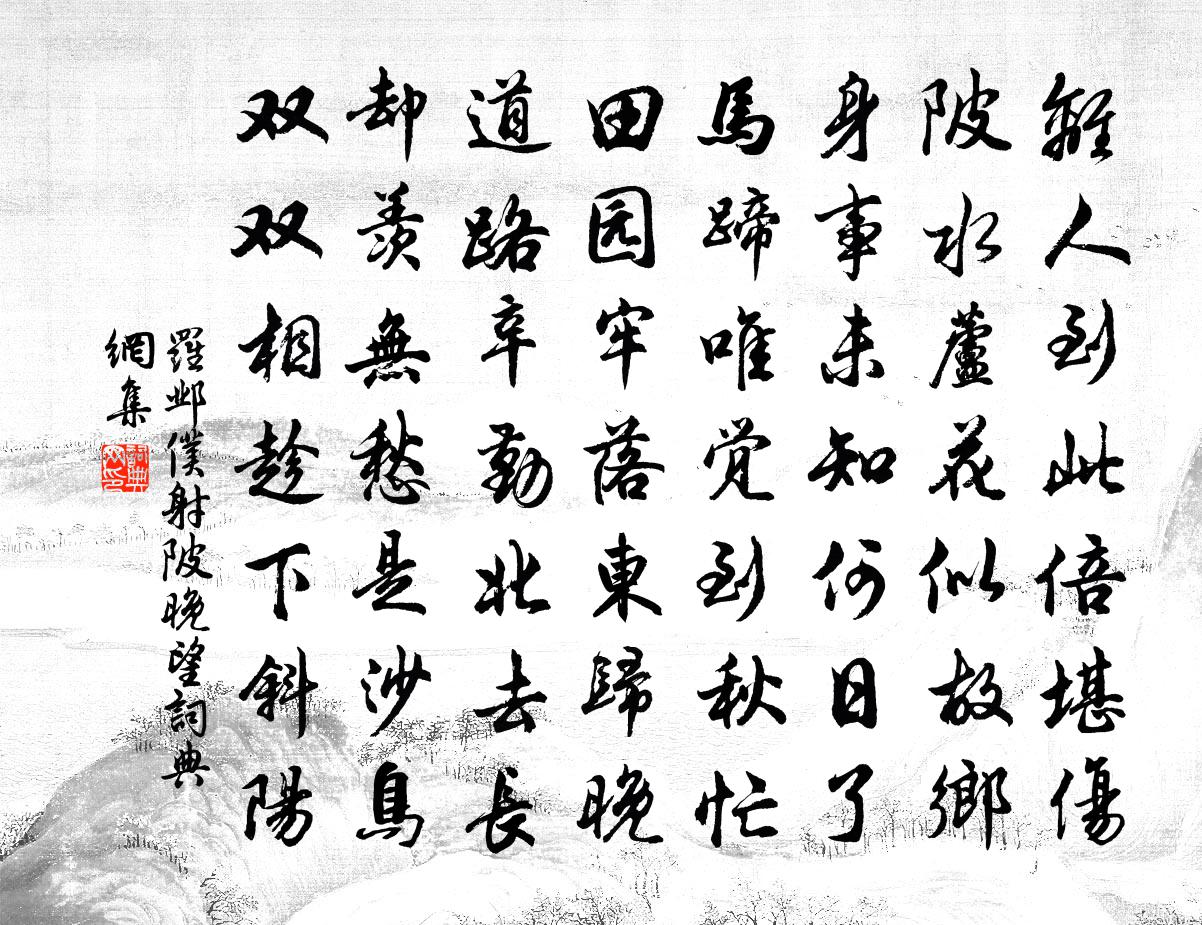 離人到此倍堪傷
陂水蘆花似故鄉
身事未知何日了
馬蹄唯覺到秋忙
田园牢落東歸晚
道路辛勤北去長
却羨無愁是沙鳥
双双相趁下斜陽
羅鄴僕射陂晚望詞典
網集
詞典
网印